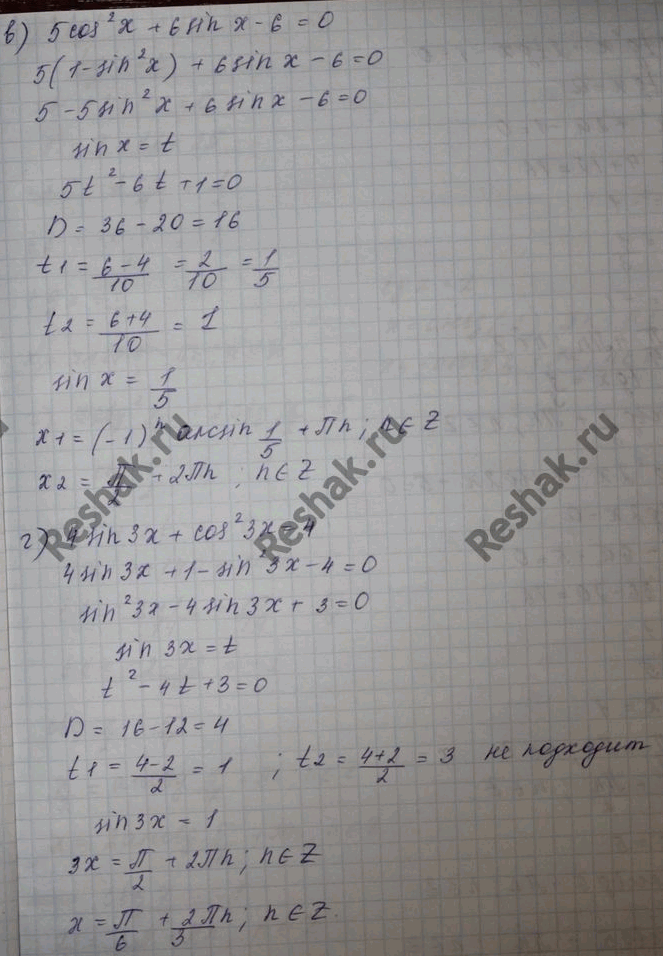 в) 5cos²x + 6sinx - 6 = 0
5(1-sin²x) + 6sinx - 6 = 0
5 - 5sin²x + 6sinx - 6 = 0
sinx = t
5t² - 6t + 1 = 0
D = 36 - 20 = 16
t1 = (6-4)/10 = 2/10 = 1/5
t2 = (6+4)/10 = 1
sinx = 1/5
x1 = (-1)ⁿ arcsin 1/5 + Πn; n∈Z
x2 = Π/2 + 2Πn; n∈Z
Reshak.ru Reshak.ru Reshak.ru
г) 4sin3x + cos²3x = 4
4sin3x + 1 - sin²3x - 4 = 0
sin²3x - 4sin3x + 3 = 0
sin3x = t
t² - 4t + 3 = 0
D = 16 - 12 = 4
t1 = (4-2)/2 = 1 ; t2 = (4+2)/2 = 3 не подходит
sin3x = 1
3x = Π/2 + 2Πn; n∈Z
x = Π/6 + 2Πn/3; n∈Z.